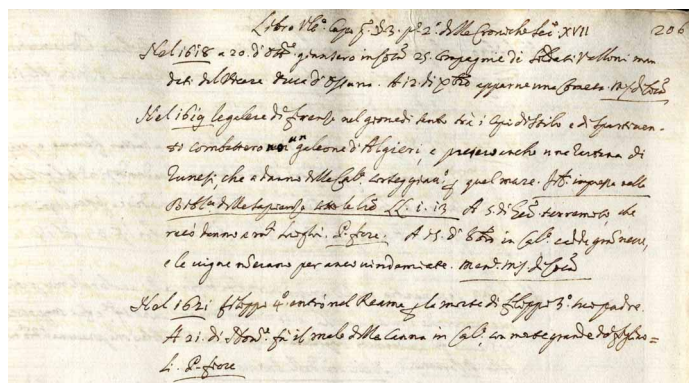 Libro Ulo. Capo 5. di 3. pe. 2a. delle Croniche Sec. XVII 206
Nel 1618 a 20. d'8bre. giunsero in 25. Compagnie di Soldati Valloni man
dati dal Vicere Duca d'Ossuna. A 12. di Xbre apparve una Cometa. Ms. di
Nel 1619 le galere di firenze nel giovedi santo trà i Capi di Stilo, e di Spartiven-
to combattero un galeone d'Algieri, e presero anche una tartana di
Tunesi, che a danno della Cal. corteggiava. p quel mare. impressa nella
della Sapienza LL. i. 13 A 5. di terramoto, che
recò danno a luoghi. P. fiore. A 15. di 8bre in Cal. cadde gran neve,
e le vigne non erano per anco vindamiate. Ms. di
Nel 1621 filippo 4o. entrò nel Reame p la morte di filippo 3o. suo padre.
A 21. di fù il male della Canna in Cal. con morte grande de figliuo=
li. P. fiore